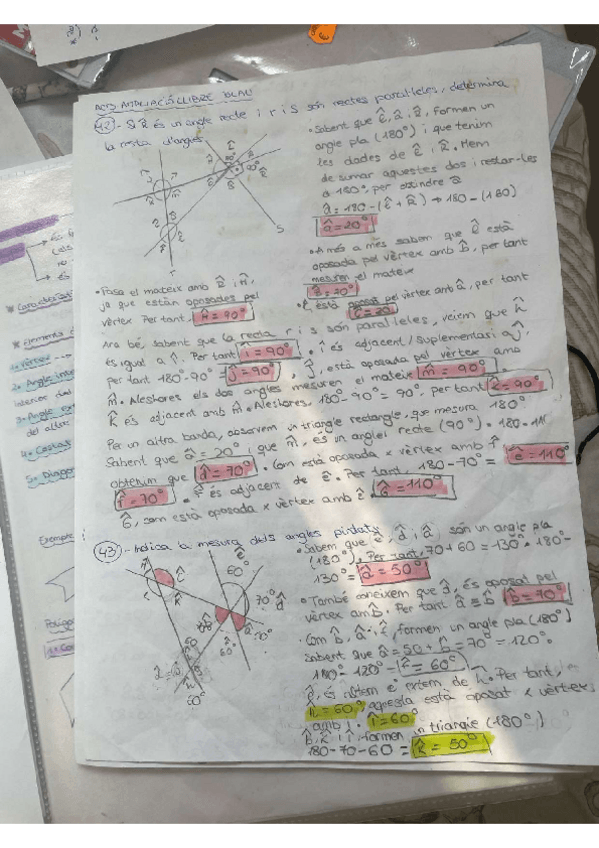 ACTS AMPLIACIÓ LLIBRE BLAU
42 - Si R̂ és un angle recte i r i s són rectes paral·leles, determina
la resta d'angles
• Sabent que ĉ, â, R̂, formen un
angle pla (180°) i que tenim
les dades de ĉ i R̂. Hem
de sumar aquestes dos i restar-les
a 180° per
â = 180 - (ĉ + R̂) → 180 - (160)
â = 20°
• A més a més sabem que ĉ està
oposada pel vèrtex amb b̂, per tant
mesuren el mateix
• Passa el mateix amb
ja que estàn oposades pel
vèrtex. Per tant, ĥ = 90°
està oposada pel vèrtex amb â, per tant
Ara bé, sabent que la recta r i s són paral·leles, veiem que ĥ
és igual a î. Per tant î = 90°. î és adjacent / suplementasi a ĵ,
per tant 180° - 90° = ĵ = 90°. ĵ, està oposada pel vèrtex amb
m̂. Aleshores els dos angles mesuren el mateix m̂ = 90°
k̂ és adjacent amb m̂. Aleshores, 180° - 90° = 90°, per tant k̂ = 90°
Per un altra banda, observem un triangle rectangle, que mesura 180°
Sabent que â = 20° i que m̂, és un angle recte (90°) • 180 - 110
obtenim que = 70°. Com està oposada x vèrtex amb
= 70°. és adjacent de ê. Per tant, 180 - 70° = ê = 110°
Ĝ, com està oposada x vèrtex amb ê. Ĝ = 110°
43 - Indica la mesura dels angles pintats
• Sabem que ĉ, d̂ i â són un angle pla
(180°). Per tant, 70 + 60 = 130° • 180° -
130° = â = 50°
• També coneixem que d̂, és oposat pel
vèrtex amb b̂. Per tant d̂ = b̂ b̂ = 70°
• Com b̂, â i f̂, formen un angle pla (180°)
Sabent que â = 50 + b̂ = 70° = 120°.
180° - 120° = f̂ = 60°
és intern e extern de ĥ. Per tant,
ĥ = 60°, aquesta està oposat x vèrtex
amb î. î = 60°
b̂, k̂ i î, formen un triangle (180°)
180 - 70 - 60 = k̂ = 50°
S
r
60°
70°
60°
* Característi
* Elements
1• Vèrtex
2• Angle inte
interior del
3• Angle ex
4• Costat
5• Diagon
Exemple